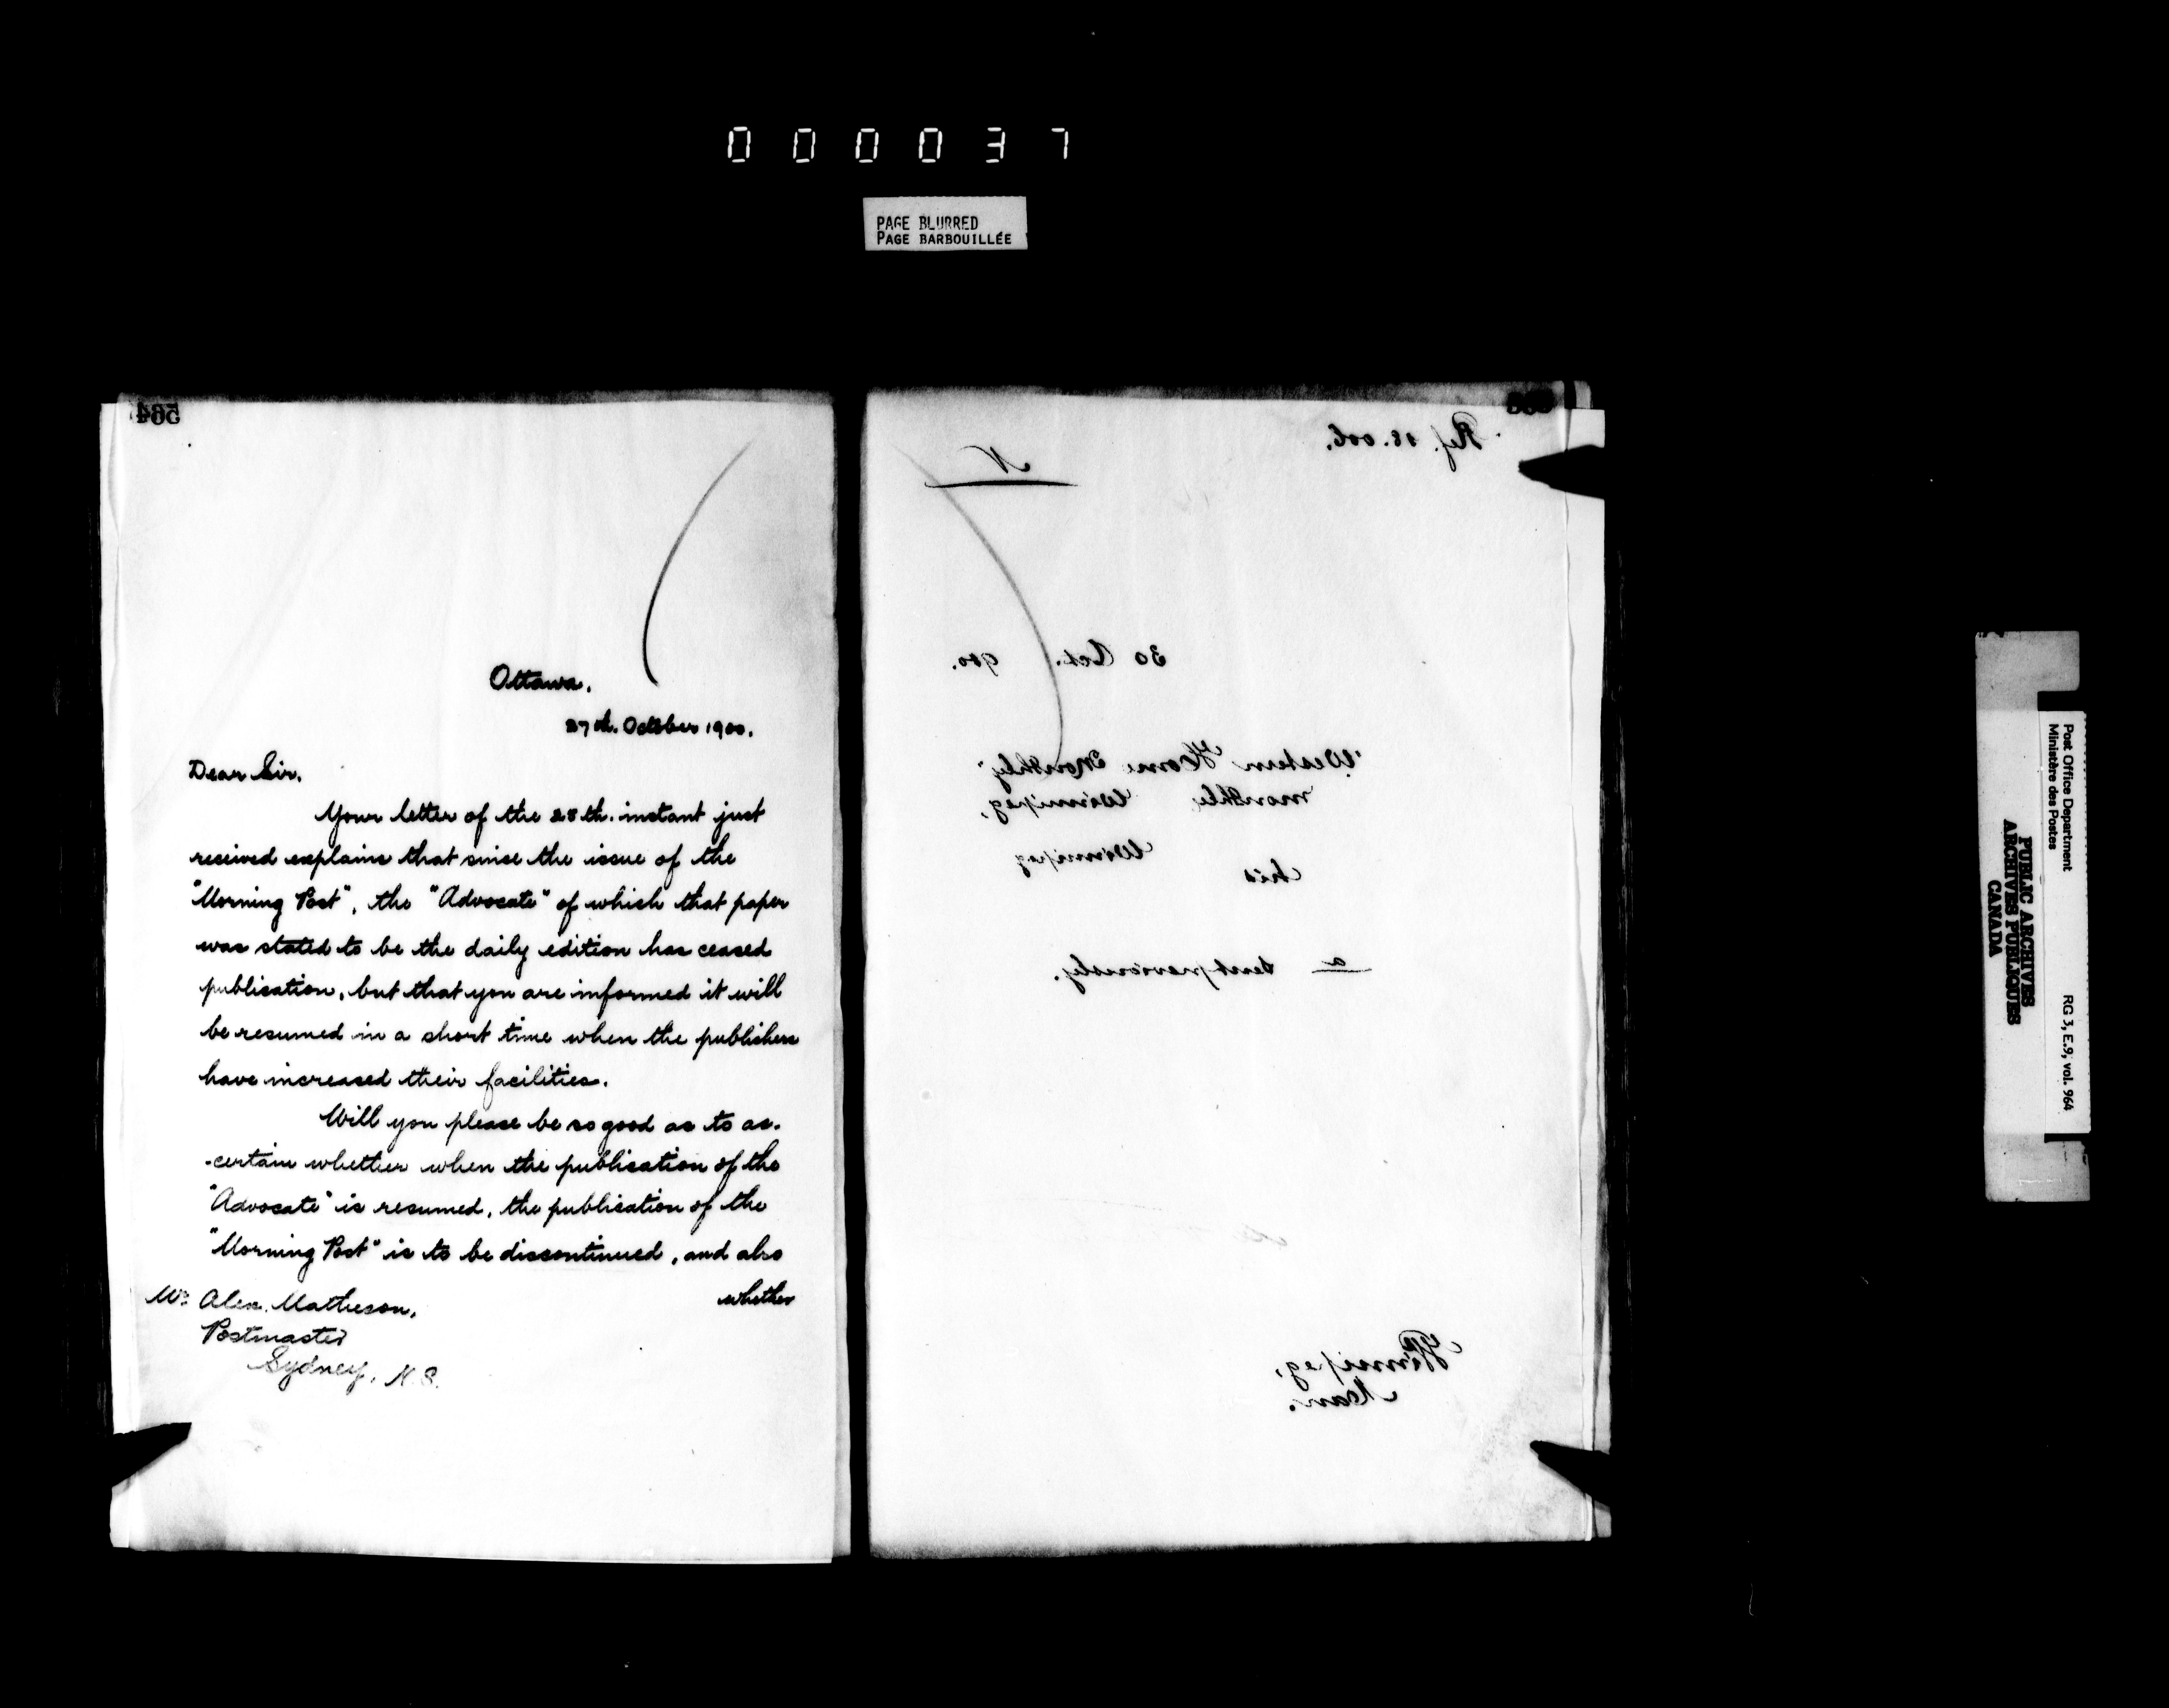 000037
PAGE BLURRED
PAGE BARBOUILLÉE
564
Ottawa.
27th. October 1900.
Dear Sir,
Your letter of the 25th. instant just
received explains that since the issue of the
"Morning Post", the "Advocate" of which that paper
was stated to be the daily edition has ceased
publication, but that you are informed it will
be resumed in a short time when the publishers
have increased their facilities.
Will you please be so good as to as-
-certain whether when the publication of the
"Advocate" is resumed, the publication of the
"Morning Post" is to be discontinued, and also
whether
Mr. Alex. Matheson,
Postmaster
Sydney, N.S.
Ref.
N
30 Oct. 900.
"Western Home Monthly"
monthly Winnipeg,
Winnipeg
this
a sent previously.
Winnipeg,
Man.
Post Office Department
Ministère des Postes
RG 3, E.9, vol. 964
PUBLIC ARCHIVES
ARCHIVES PUBLIQUES
CANADA